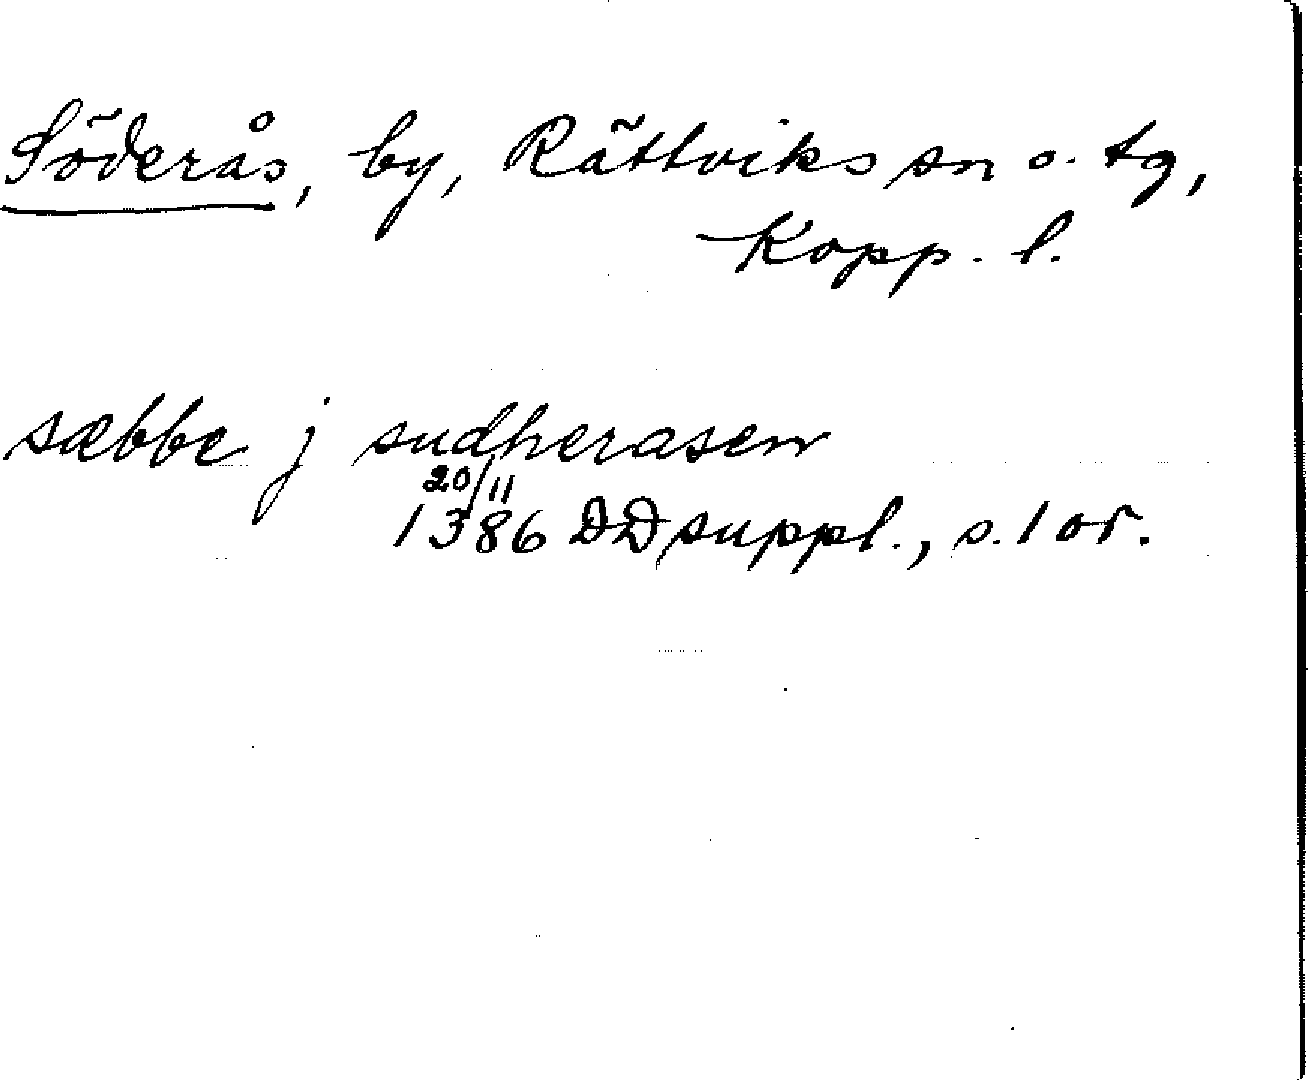 Söderås, by, Rättviks sn o. tg,
Kopp. l.
sæbbe j sudherasen
20/11
1386 DD suppl., s. 1 or.